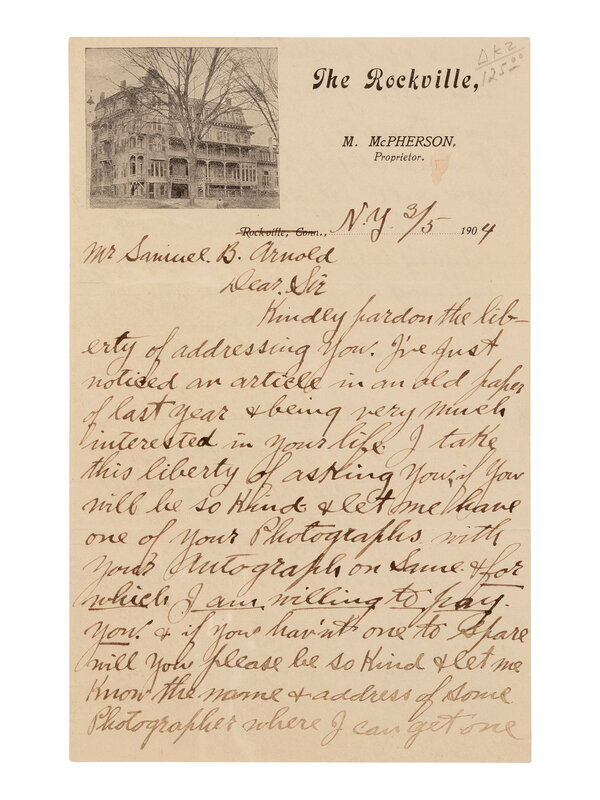 The Rockville,
ΔK2
125.00
M. McPHERSON,
Proprietor.
Rockville, Conn., N.Y. 3/5 1904
Mr Samuel. B. Arnold
Dear. Sir
Kindley pardon the lib-
erty of addressing You. I've just
noticed an article in an old paper
of last year & being very much
interested in your life I take
this liberty of asking You, if You
will be so Kind & let me have
one of your Photographs, with
Your Autograph on Same. & for
which I am willing to pay.
You. & if You hav'nt one to spare
will you please be so Kind & let me
Know the name & address of some
Photographer where I can get one